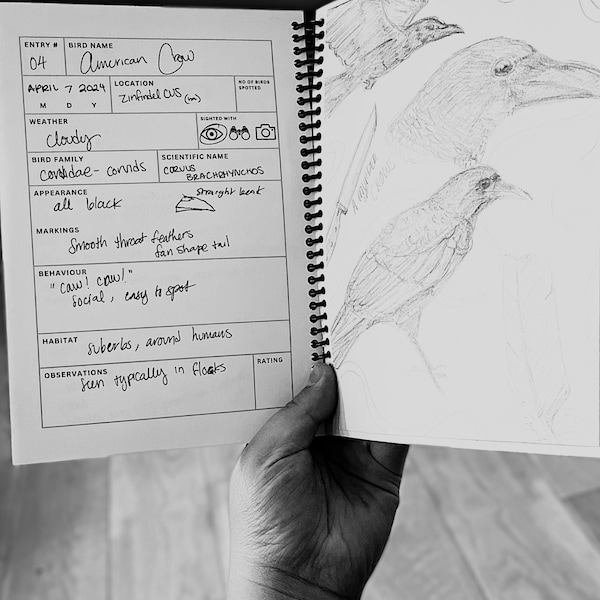 ENTRY #
04
BIRD NAME
American Crow
APRIL 7 2024
M D Y
LOCATION
Zinfindel CUS (mn)
NO OF BIRDS
SPOTTED
WEATHER
cloudy
SIGHTED WITH
BIRD FAMILY
corvidae - corvids
SCIENTIFIC NAME
CORVUS
BRACHRHYNCHOS
APPEARANCE
all black
straight beak
MARKINGS
smooth throat feathers
fan shape tail
BEHAVIOUR
"caw! caw!"
social, easy to spot
HABITAT
suberbs, around humans
OBSERVATIONS
seen typically in flocks
RATING